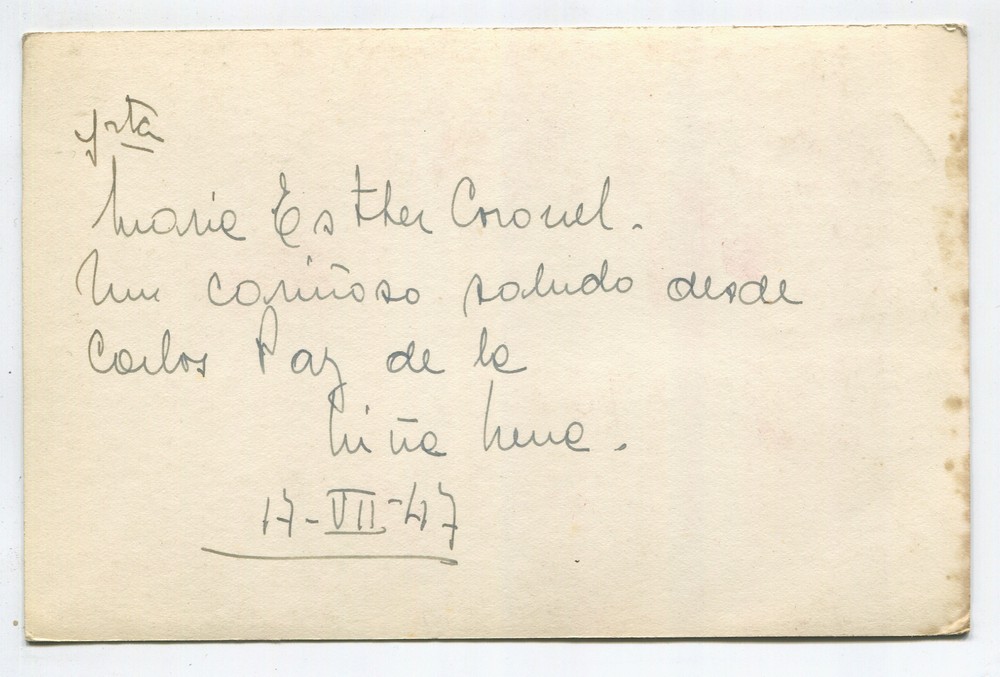 Srta
Maria Esther Coronel.
Un cariñoso saludo desde
Carlos Paz de la
niña Nena.
17-VII-47